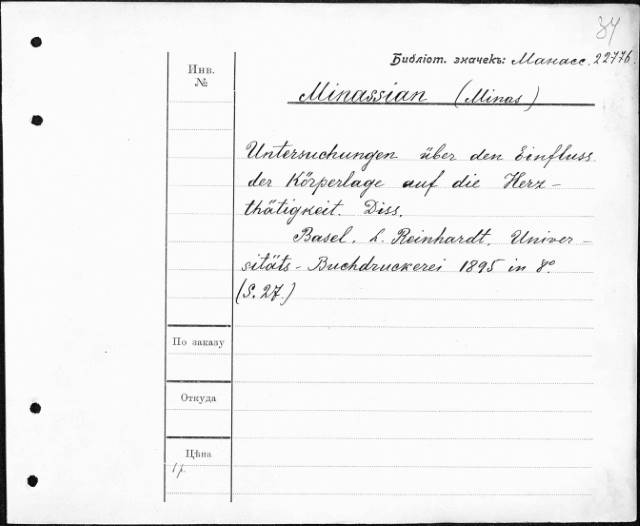 34
Библіот. значекъ: Манасс. 22776.
Инв.
№
Minassian (Minas)
Untersuchungen über den Einfluss
der Körperlage auf die Herz-
thätigkeit. Diss.
Basel. L. Reinhardt. Univer-
sitäts-Buchdruckerei 1895 in 8º
(S. 27.)
По заказу
Откуда
Цѣна